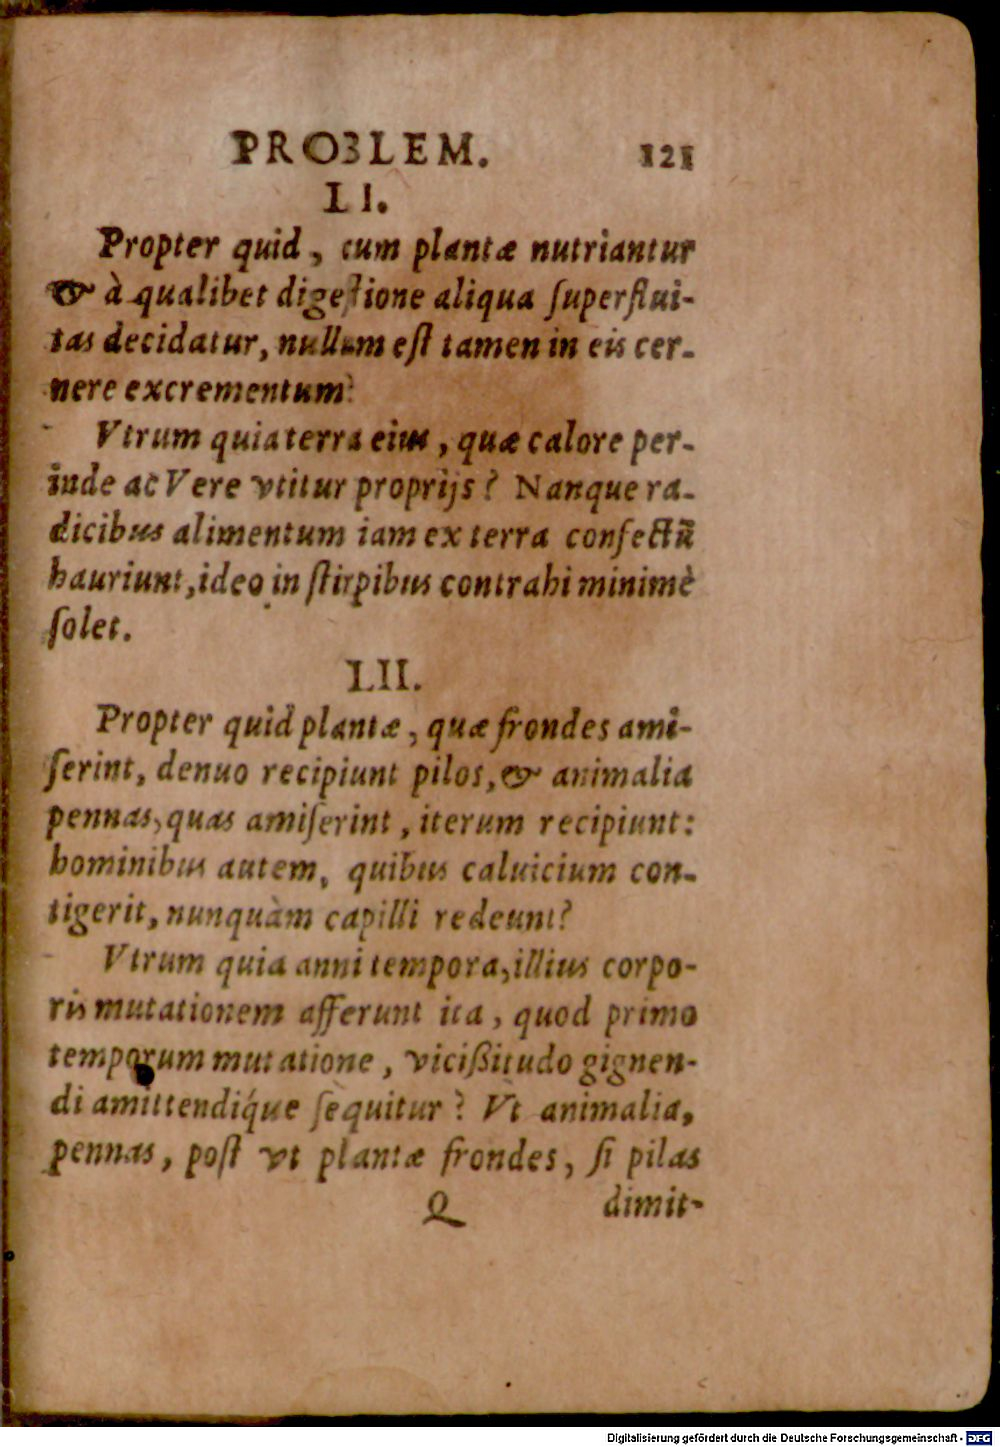 PROBLEM. 121
LI.
Propter quid, cum plantæ nutriantur
& à qualibet digeſtione aliqua ſuperflui-
tas decidatur, nullum eſt tamen in eis cer-
nere excrementum?
Vtrum quia terra eius, quæ calore per-
inde ac Vere vtitur proprijs? Nanque ra-
dicibus alimentum iam ex terra confectũ
hauriunt, ideo in ſtirpibus contrahi minimè
ſolet.
LII.
Propter quid plantæ, quæ frondes ami-
ſerint, denuo recipiunt pilos, & animalia
pennas, quas amiſerint, iterum recipiunt:
hominibus autem, quibus caluicium con-
tigerit, nunquàm capilli redeunt?
Vtrum quia anni tempora, illius corpo-
ris mutationem afferunt ita, quod primo
temporum mutatione, vicißitudo gignen-
di amittendíque ſequitur? Vt animalia,
pennas, poſt vt plantæ frondes, ſi pilas
Q dimit-
Digitalisierung gefördert durch die Deutsche Forschungsgemeinschaft - DFG